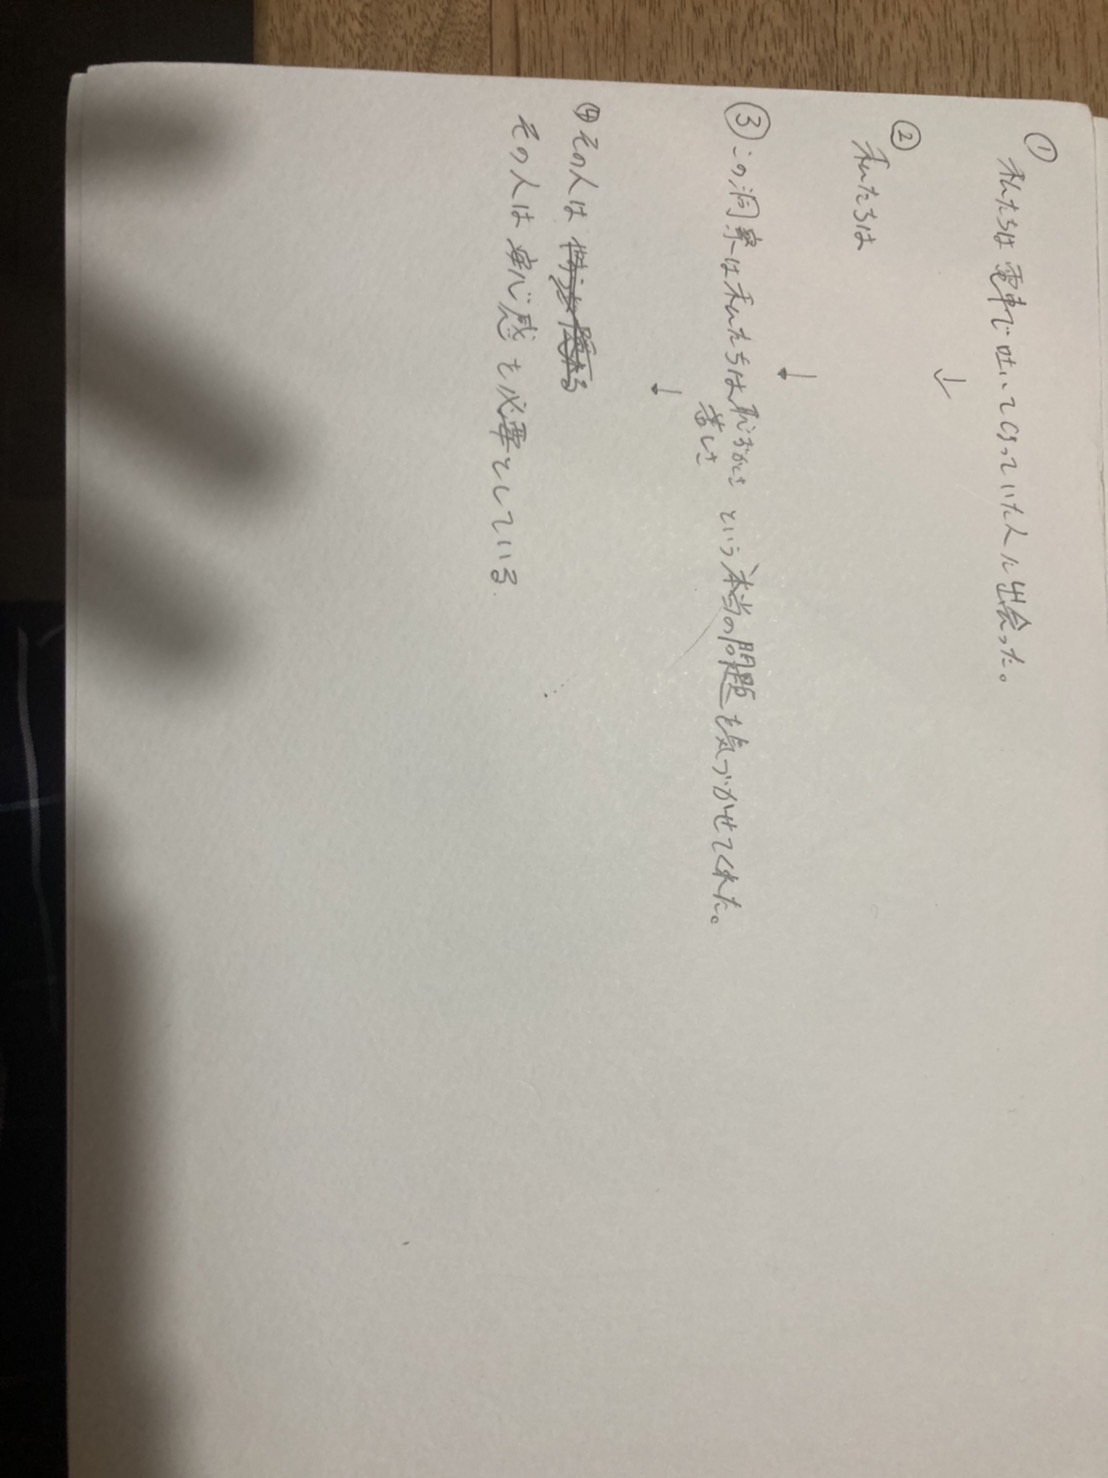 ①
私たちは電車で吐いてしまっていた人に出会った。
↓
②
私たちは
↓
③この洞察は私たちは恥ずかしさという本当の問題を気づかせてくれた。
苦しさ
↓
④その人は
その人は安心感を必要としている.